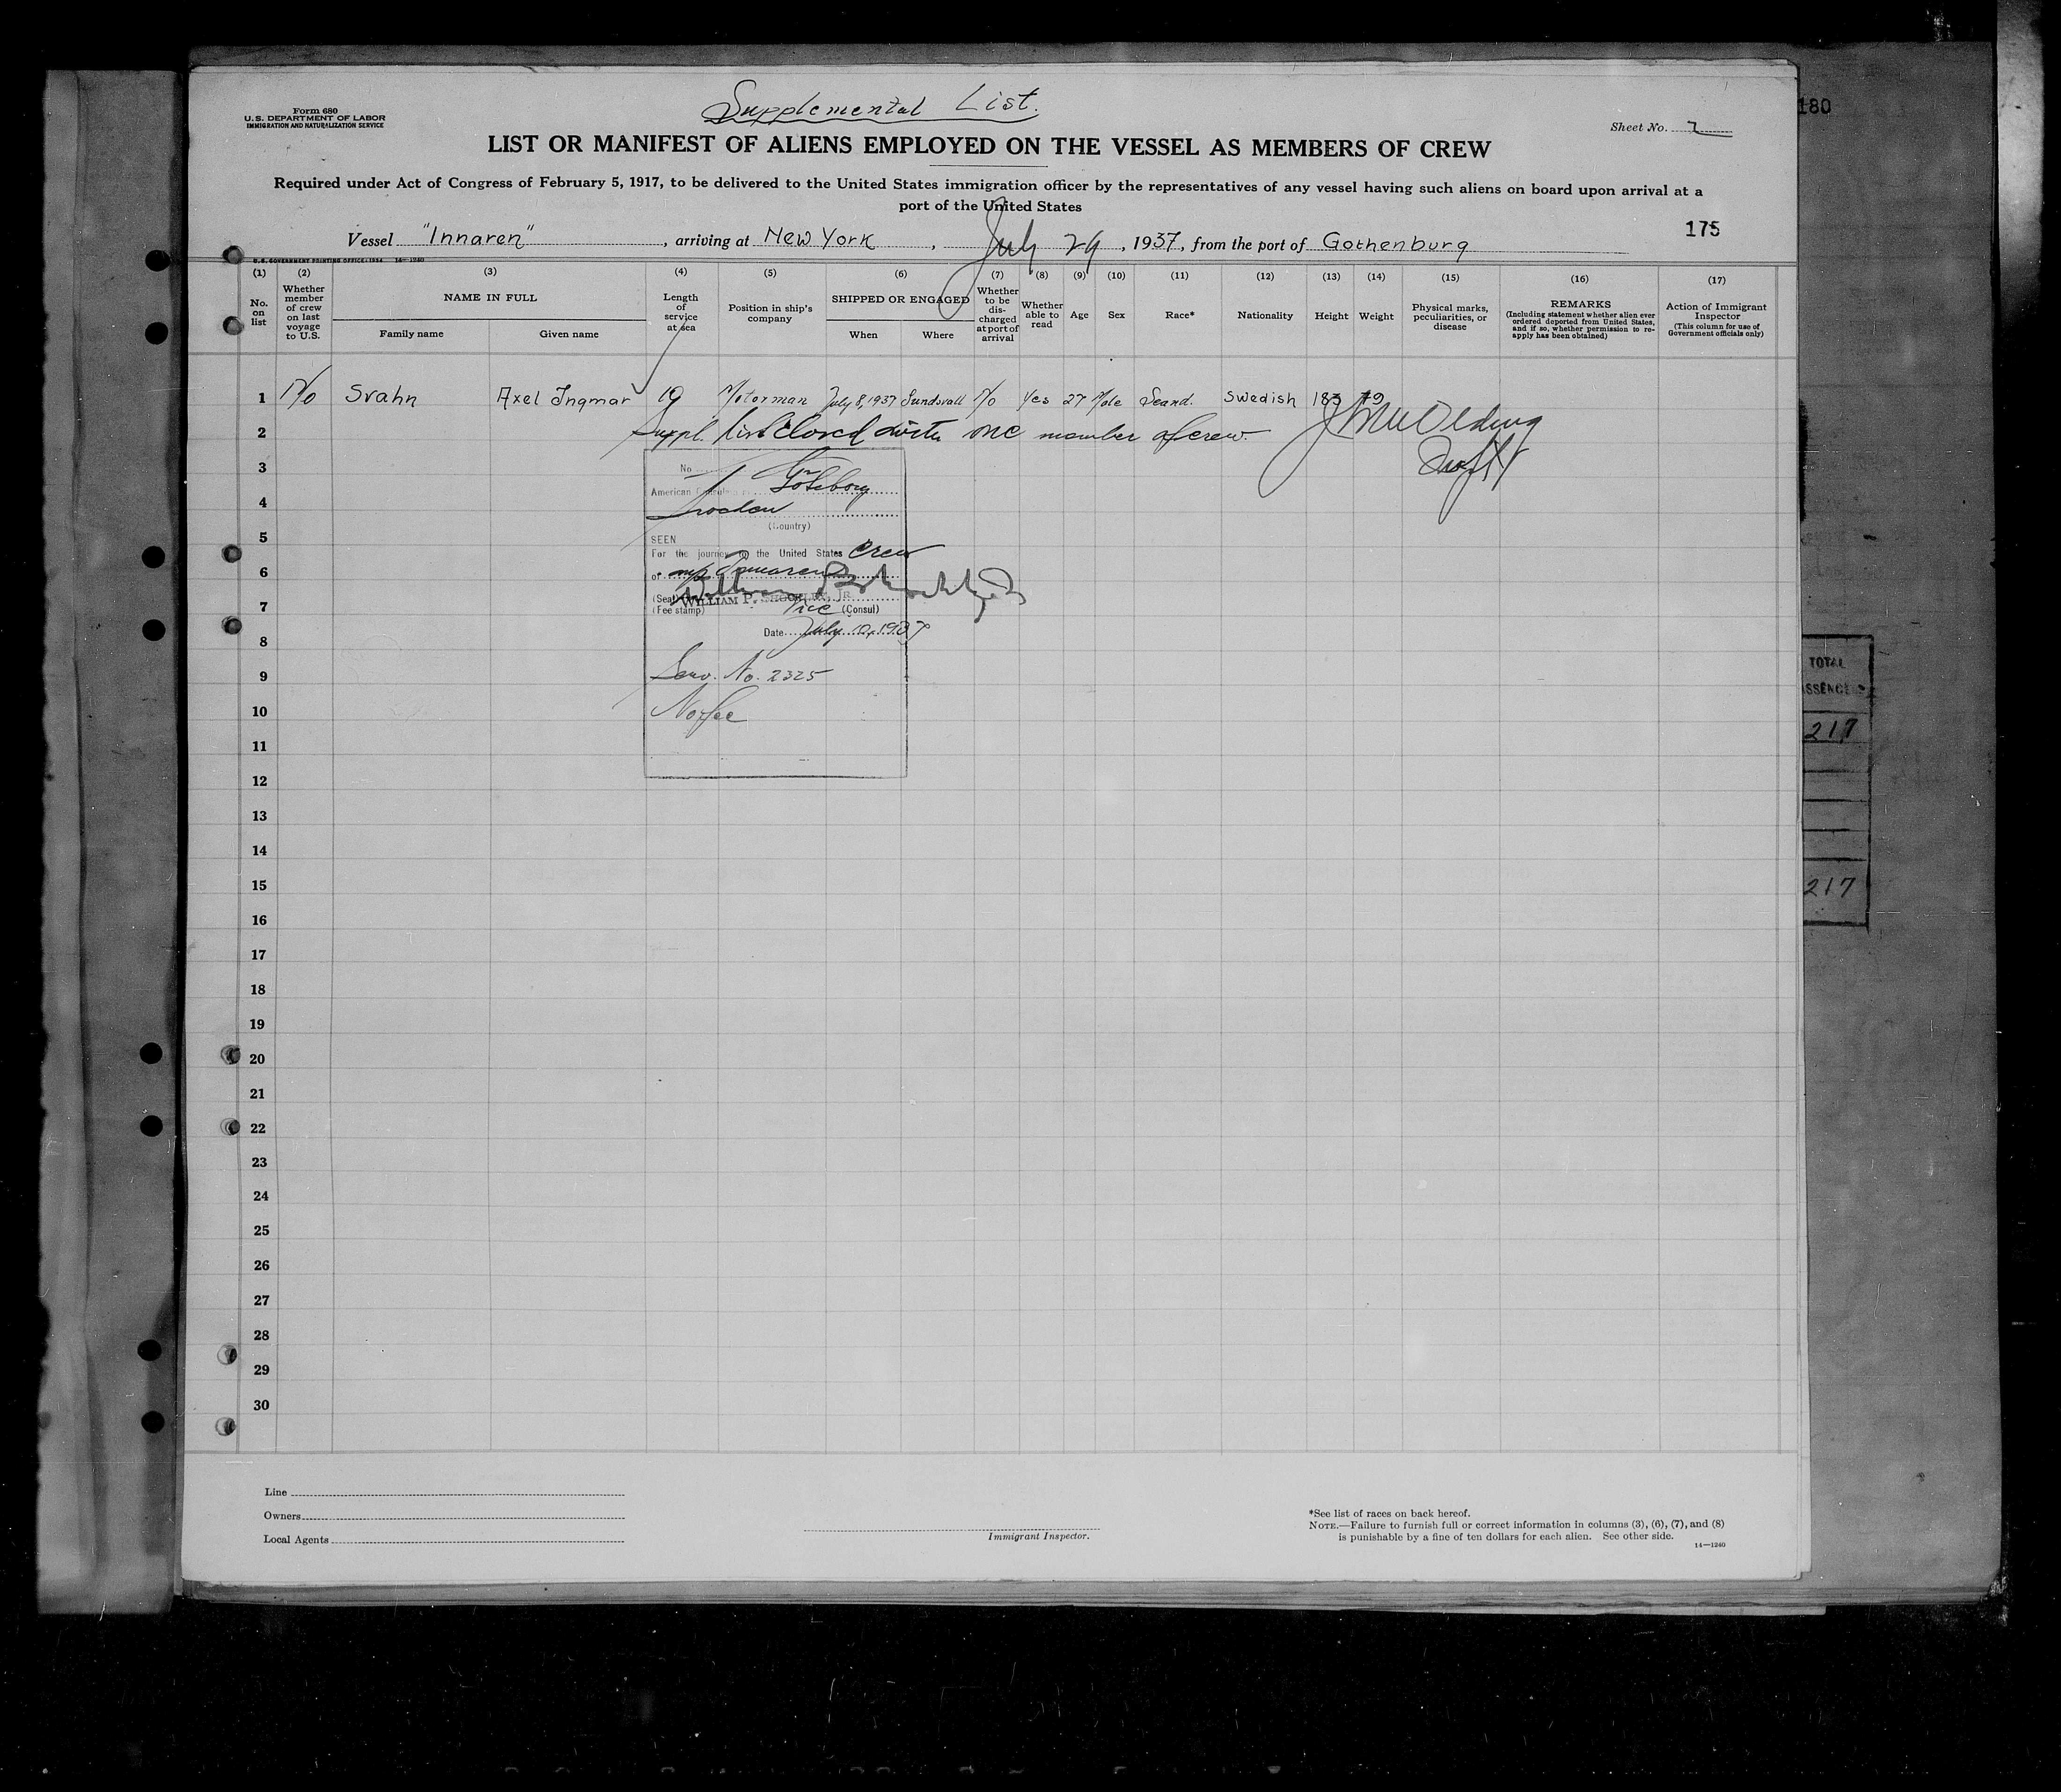 Supplemental List.
Form 680
U.S. DEPARTMENT OF LABOR
IMMIGRATION AND NATURALIZATION SERVICE
180
Sheet No.
LIST OR MANIFEST OF ALIENS EMPLOYED ON THE VESSEL AS MEMBERS OF CREW
Required under Act of Congress of February 5, 1917, to be delivered to the United States immigration officer by the representatives of any vessel having such aliens on board upon arrival at a
port of the United States
175
Vessel "Innaren", arriving at New York, July 29, 1937, from the port of Gothenburg
U.S. GOVERNMENT PRINTING OFFICE: 1934 14—1240
(1) (2) (3) (4) (5) (6) (7) (8) (9) (10) (11) (12) (13) (14) (15) (16) (17)
No. on list
Whether member of crew on last voyage to U.S.
NAME IN FULL
Family name
Given name
Length of service at sea
Position in ship's company
SHIPPED OR ENGAGED
When
Where
Whether to be discharged at port of arrival
Whether able to read
Age
Sex
Race*
Nationality
Height
Weight
Physical marks, peculiarities, or disease
REMARKS
(Including statement whether alien ever ordered deported from United States, and if so, whether permission to re-apply has been obtained)
Action of Immigrant Inspector
(This column for use of Government officials only)
1 No Svahn Axel Ingmar 19 Motorman July 8, 1937 Sundsvall No Yes 27 Male Scand. Swedish 183 79
2 Suppl. list closed with one member of crew.
3
4
5
6
7
8
9
10
11
12
13
14
15
16
17
18
19
20
21
22
23
24
25
26
27
28
29
30
No
American Consul Göteborg
Sweden
(Country)
SEEN
For the journey to the United States crew
of m/s Innaren
(Seal)
WILLIAM P. SHOCKLEY, JR.
(Fee stamp) Vice (Consul)
Date July 10, 1937
Serv. No. 2325
No fee
TOTAL
217
217
Line
Owners
Local Agents
Immigrant Inspector.
*See list of races on back hereof.
NOTE.—Failure to furnish full or correct information in columns (3), (6), (7), and (8)
is punishable by a fine of ten dollars for each alien. See other side.
14—1240